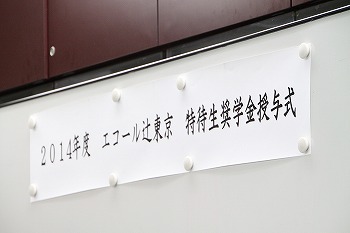 2014年度　エコール辻東京　特待生奨学金授与式